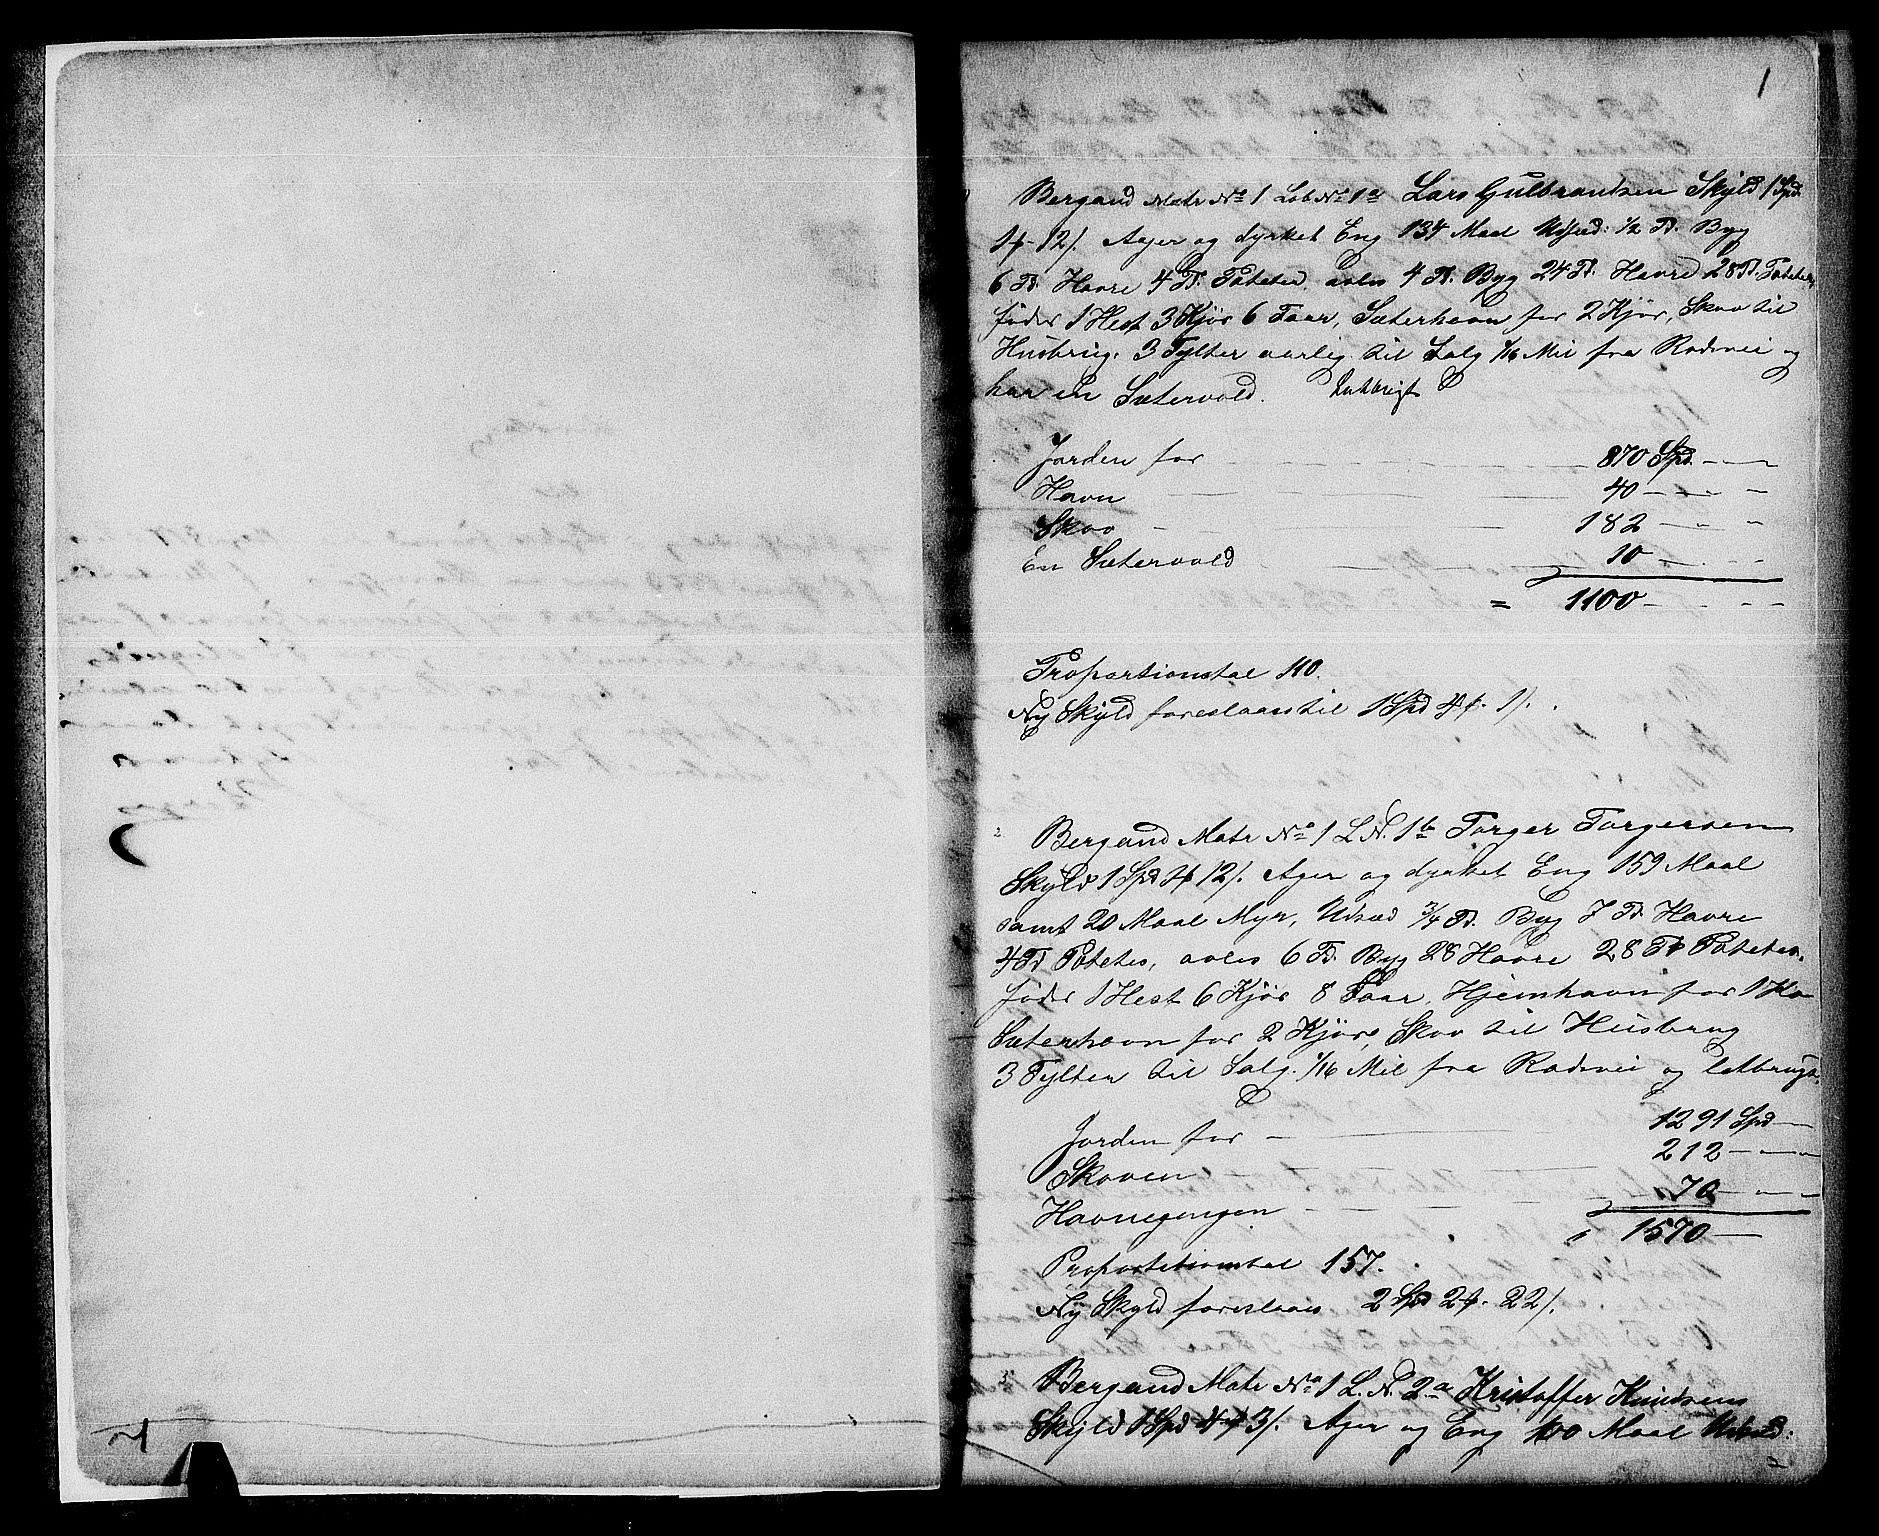 1
Bergand Matr No 1 Lob No 1a Lars Gulbrandsen Skyld 1 Spd.
1f-12/. Ager og dyrket Eng 134 Maal Udsæd: 1/2 Td. Byg
6 Td. Havre 4 Td. Poteter, avles 4 Td. Byg 24 Td. Havre 28 Td. Poteter,
föder 1 Hest 3 Kjör 6 Faar, Sæterhavn for 2 Kjör, Skov til
Husbrug. 3 Tylter aarlig til Salg 1/16 Mil fra Rodevei og
har en Sætervold. Letbrugt
Jorden for 870 Spd. - "
Havn 40 - " - "
Skov 182 - " - "
En Sætervold 10 - " - "
= 1100 - " - "
Proportionstal 110.
Ny Skyld foreslaaes til 1 Spd 4f. 1/.
2 Bergand Matr No 1 L.N. 1b Torger Torgersen
Skyld 1 Spd 1f 12/. Ager og dyrket Eng 159 Maal
samt 20 Maal Myr, Udsæd 3/4 Td. Byg 7 Td. Havre
4 Td Poteter, avles 6 Td. Byg 28 Havre 28 Td Poteter.
föder 1 Hest 6 Kjör 8 Faar, Hjemhavn for 1 Ko
Sæterhavn for 2 Kjöre, Skov til Husbrug
3 Tylter til Salg. 1/16 Mil fra Rodevei og letbrugt.
Jorden for - 1291 Spd -
Skoven 212 - " - "
Havnegangen 70 - " - "
" 1570 -
Proportionstal 157.
Ny Skyld foreslaaes 2 Spd 2f. 22/.
3 Bergand Matr No 1 L.N. 2a Kristoffer Knudsens
Skyld 1 Spd 4f 3/. Ager og Eng 100 Maal